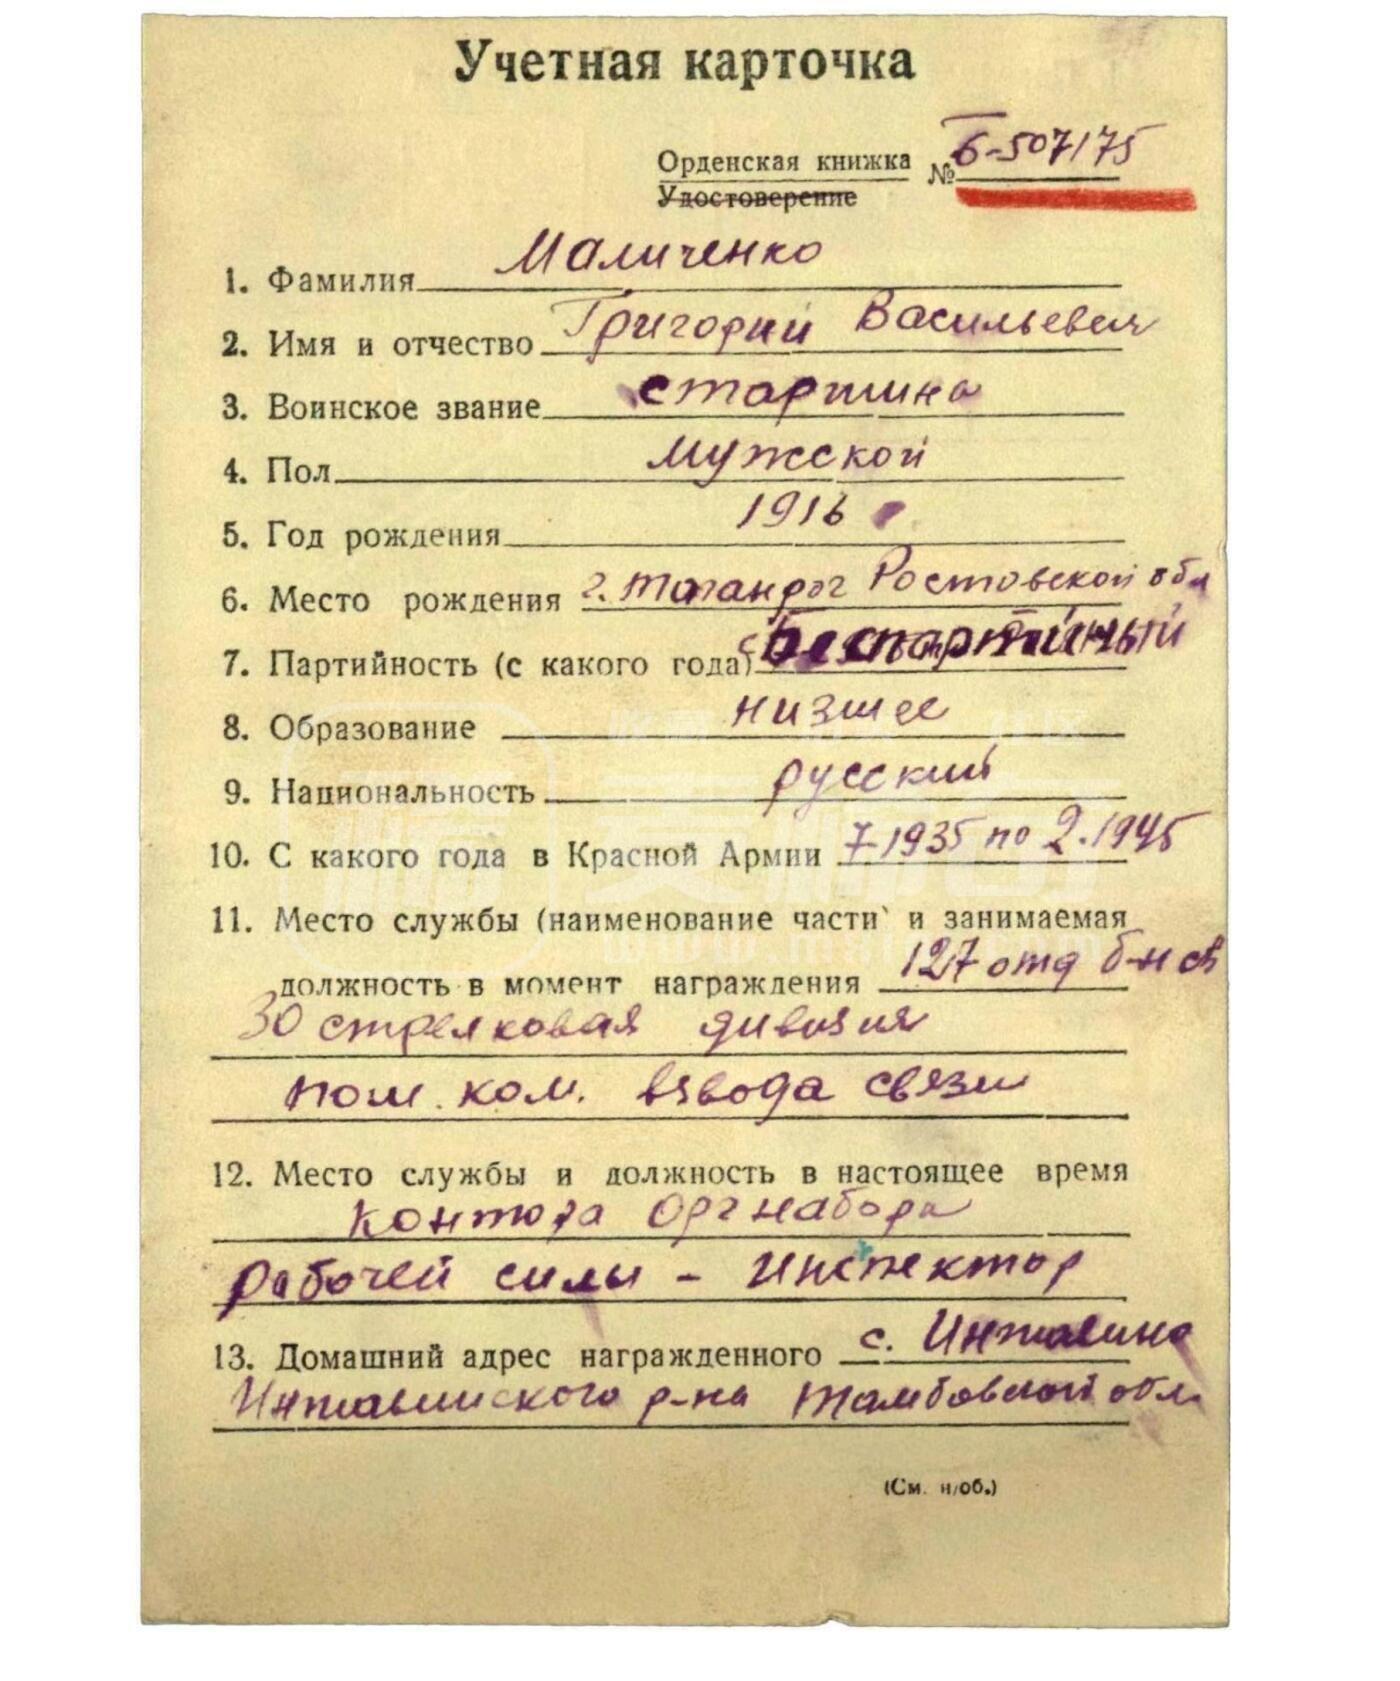 Учетная карточка
Орденская книжка № Б-507175
Удостоверение
1. Фамилия Маличенко
2. Имя и отчество Григорий Васильевич
3. Воинское звание старшина
4. Пол мужской
5. Год рождения 1916
6. Место рождения г. Таганрог Ростовской обл
7. Партийность (с какого года) Беспартийный
8. Образование низшее
9. Национальность русский
10. С какого года в Красной Армии 7-1935 по 2.1945
11. Место службы (наименование части и занимаемая
должность в момент награждения 127 отд б-н св
30 стрелковая дивизия
пом. ком. взвода связи
12. Место службы и должность в настоящее время
контора Оргнабора
рабочей силы - инспектор
13. Домашний адрес награжденного с. Инжавино
Инжавинского р-на Тамбовской обл.
(См. н/об.)